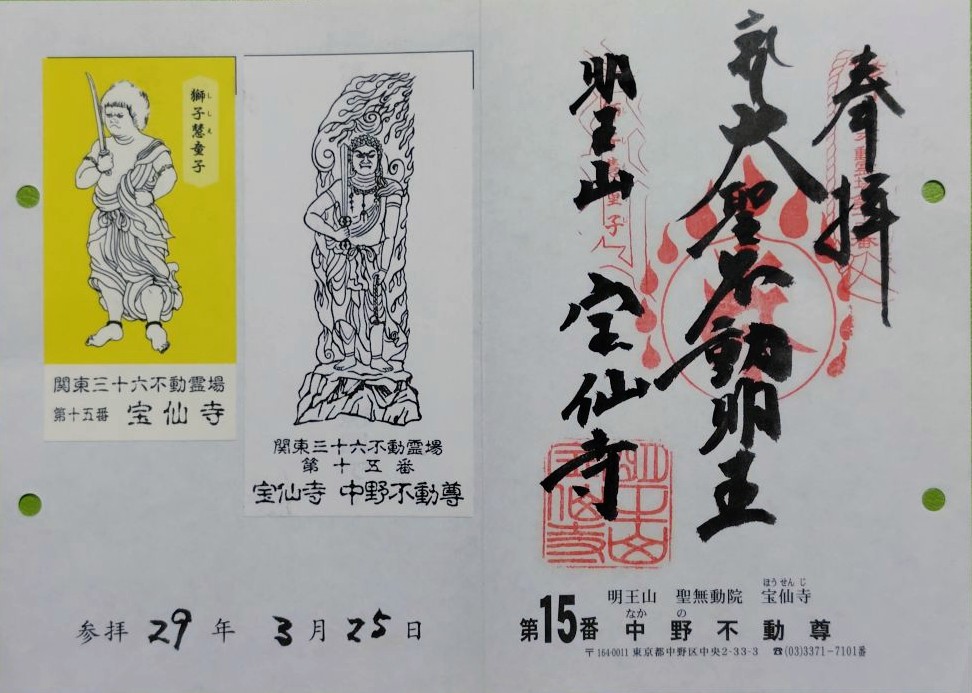 奉拝
大聖不動明王
明王山 宝仙寺
明王山 聖無動院 宝仙寺
ほうせんじ
第15番 中野不動尊
なか の
〒164-0011 東京都中野区中央2-33-3 ☎(03)3371-7101番
獅子慧童子
し し え
関東三十六不動霊場
第十五番 宝仙寺
関東三十六不動霊場
第十五番
宝仙寺 中野不動尊
参拝 29 年 3 月 25 日